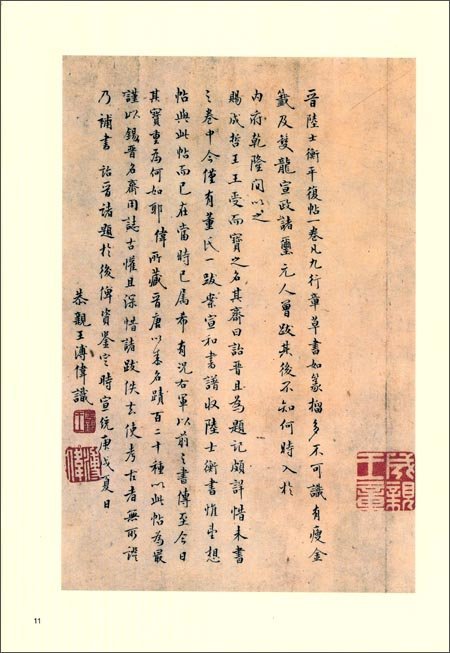 晉陸士衡平復帖一卷凡九行章草書如篆籀多不可識有瘦金
籤及雙龍宣政諸璽元人曾跋其後不知何時入於
內府乾隆間以之
賜成哲王王受而寶之名其齋曰詒晉且為題記頗詳惜未書
之卷中今僅有董氏一跋案宣和書譜收陸士衡書惟望想
帖與此帖而已在當時已屬希有況右軍以前之書傳至今日
其寶重為何如耶偉所藏晉唐以來名蹟百二十種以此帖為最
謹以錫晉名齋用誌古懽且深惜諸跋佚去使考古者無所證
乃補書詒晉諸題於後俾資鑒定時宣統庚戌夏日
恭親王溥偉識
溥偉
成親王章
11